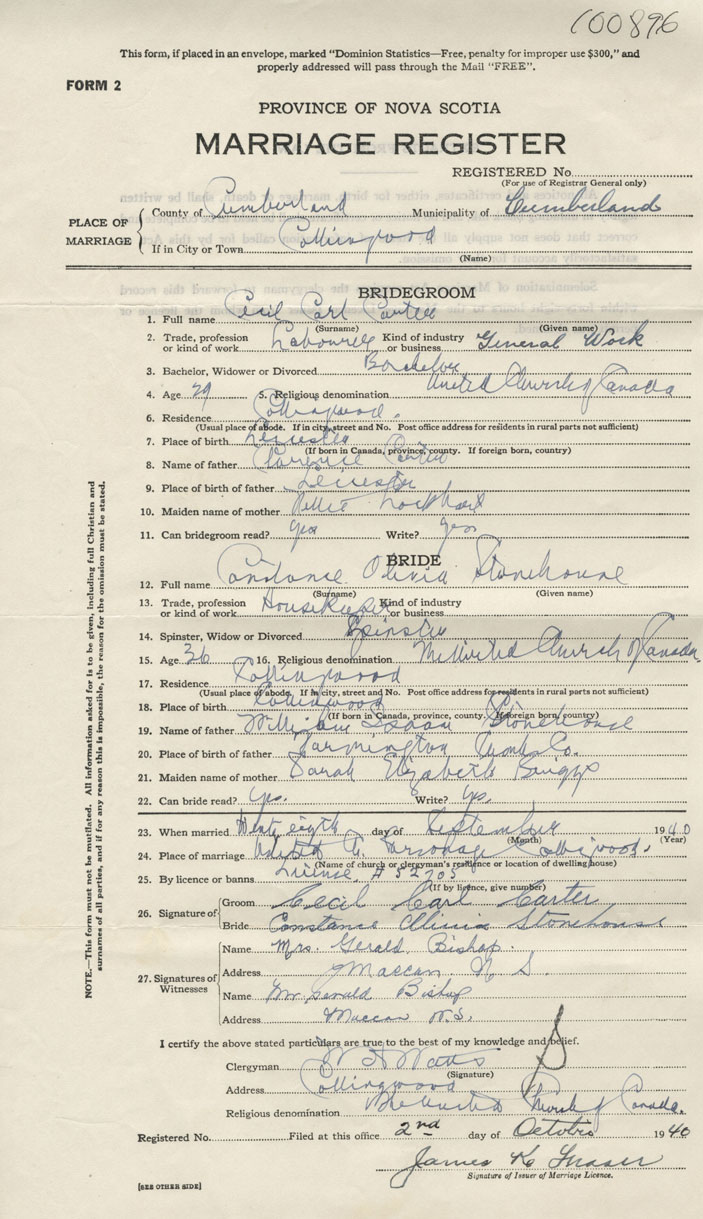 100896
This form, if placed in an envelope, marked "Dominion Statistics—Free, penalty for improper use $300," and
properly addressed will pass through the Mail "FREE".
FORM 2
PROVINCE OF NOVA SCOTIA
MARRIAGE REGISTER
REGISTERED No.
(For use of Registrar General only)
PLACE OF MARRIAGE
County of Cumberland Municipality of Cumberland
If in City or Town Collingwood
(Name)
BRIDEGROOM
1. Full name Cecil Carl Carter
(Surname) (Given name)
2. Trade, profession or kind of work Labourer Kind of industry or business General Work
3. Bachelor, Widower or Divorced Bachelor
4. Age 29 5. Religious denomination United Church of Canada
6. Residence Collingwood.
(Usual place of abode. If in city, street and No. Post office address for residents in rural parts not sufficient)
7. Place of birth Leicester
(If born in Canada, province, county. If foreign born, country)
8. Name of father Clarence Carter
9. Place of birth of father Leicester
10. Maiden name of mother Nellie Lockhart
11. Can bridegroom read? yes Write? yes
BRIDE
12. Full name Constance Olivia Stonehouse
(Surname) (Given name)
13. Trade, profession or kind of work Housekeeper Kind of industry or business
14. Spinster, Widow or Divorced Spinster
15. Age 36 16. Religious denomination United Church of Canada
17. Residence Collingwood
(Usual place of abode. If in city, street and No. Post office address for residents in rural parts not sufficient)
18. Place of birth Collingwood
(If born in Canada, province, county. If foreign born, country)
19. Name of father William Isaac Stonehouse
20. Place of birth of father Farmington Cumb. Co.
21. Maiden name of mother Sarah Elizabeth Briggs
22. Can bride read? yes. Write? yes.
23. When married Twenty eighth day of September 1940
(Month) (Year)
24. Place of marriage United Parsonage Collingwood.
(Name of church or clergyman's residence or location of dwelling house)
25. By licence or banns License #52705
(If by licence, give number)
26. Signature of
Groom Cecil Carl Carter
Bride Constance Olivia Stonehouse
27. Signatures of Witnesses
Name Mrs. Gerald Bishop.
Address Maccan N. S.
Name Mr. Gerald Bishop
Address Maccan N.S.
I certify the above stated particulars are true to the best of my knowledge and belief.
Clergyman Watts
(Signature)
Address Collingwood
Religious denomination United Church of Canada.
Registered No. Filed at this office 2nd day of October 1940
James K Fraser
Signature of Issuer of Marriage Licence.
[SEE OTHER SIDE]
NOTE.—This form must not be mutilated. All information asked for is to be given, including full Christian and
surnames of all parties, and if for any reason this is impossible, the reason for the omission must be stated.